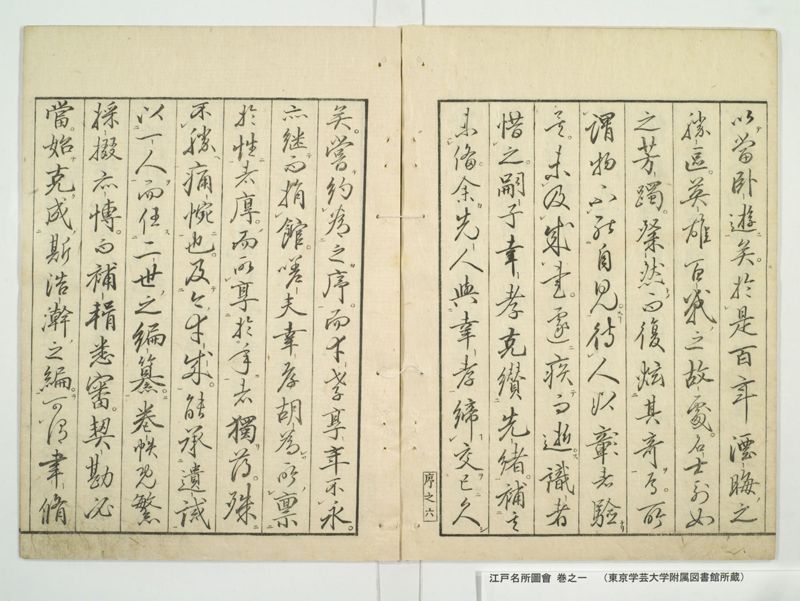 以當臥遊矣於是百年湮晦之
勝區英雄百戰之故處名士列女
之芳躅粲然而復炫其奇焉所
謂物不能自見待人以彰者驗
矣未及成書遽疾而逝識者
惜之嗣子幸孝克纘先緒補其
未備余先人與幸孝締交已久
序之六
矣嘗約爲之序而幸孝享年不永
亦継而捐館嗟夫幸孝胡爲所稟
於性者厚而所享於年者獨薄殊
不勝痛惋也及今幸成能承遺誡
以一人而任二世之編纂巻帙既繁
採掇亦慱而補輯悉審契勘必
當始克成斯浩瀚之編可謂幸脩
江戸名所圖會 巻之一 （東京学芸大学附属図書館所蔵）